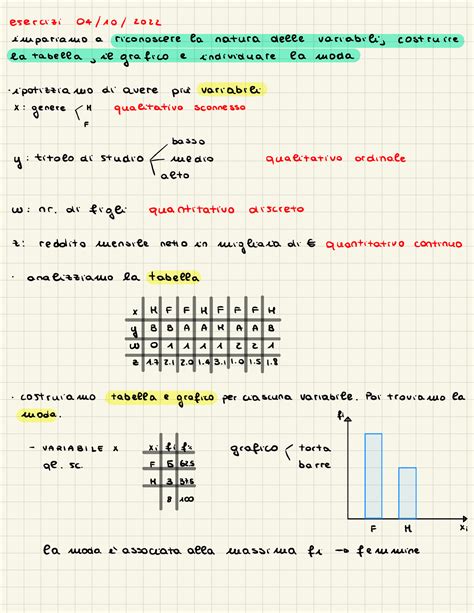 esercizi 04/10/2022
impariamo a riconoscere la natura delle variabili, costruire
la tabella, il grafico e individuare la moda
· ipotizziamo di avere più variabili
x: genere H qualitativo sconnesso
F
basso
y: titolo di studio medio qualitativo ordinale
alto
w: nr. di figli quantitativo discreto
z: reddito mensile netto in migliaia di € quantitativo continuo
· analizziamo la tabella
x H F F H F F F H
y B B A A M A A B
w 0 1 1 1 1 2 2 1
z 1.7 2.1 2.0 1.4 3.1 1.0 1.5 1.8
· costruiamo tabella e grafico per ciascuna variabile. Poi troviamo la
moda.
- VARIABILE X xi fi f% grafico torta
ql. sc. F 5 62.5 barre
H 3 37.5
8 100
fi
F H xi
la moda è associata alla massima fi → femmine